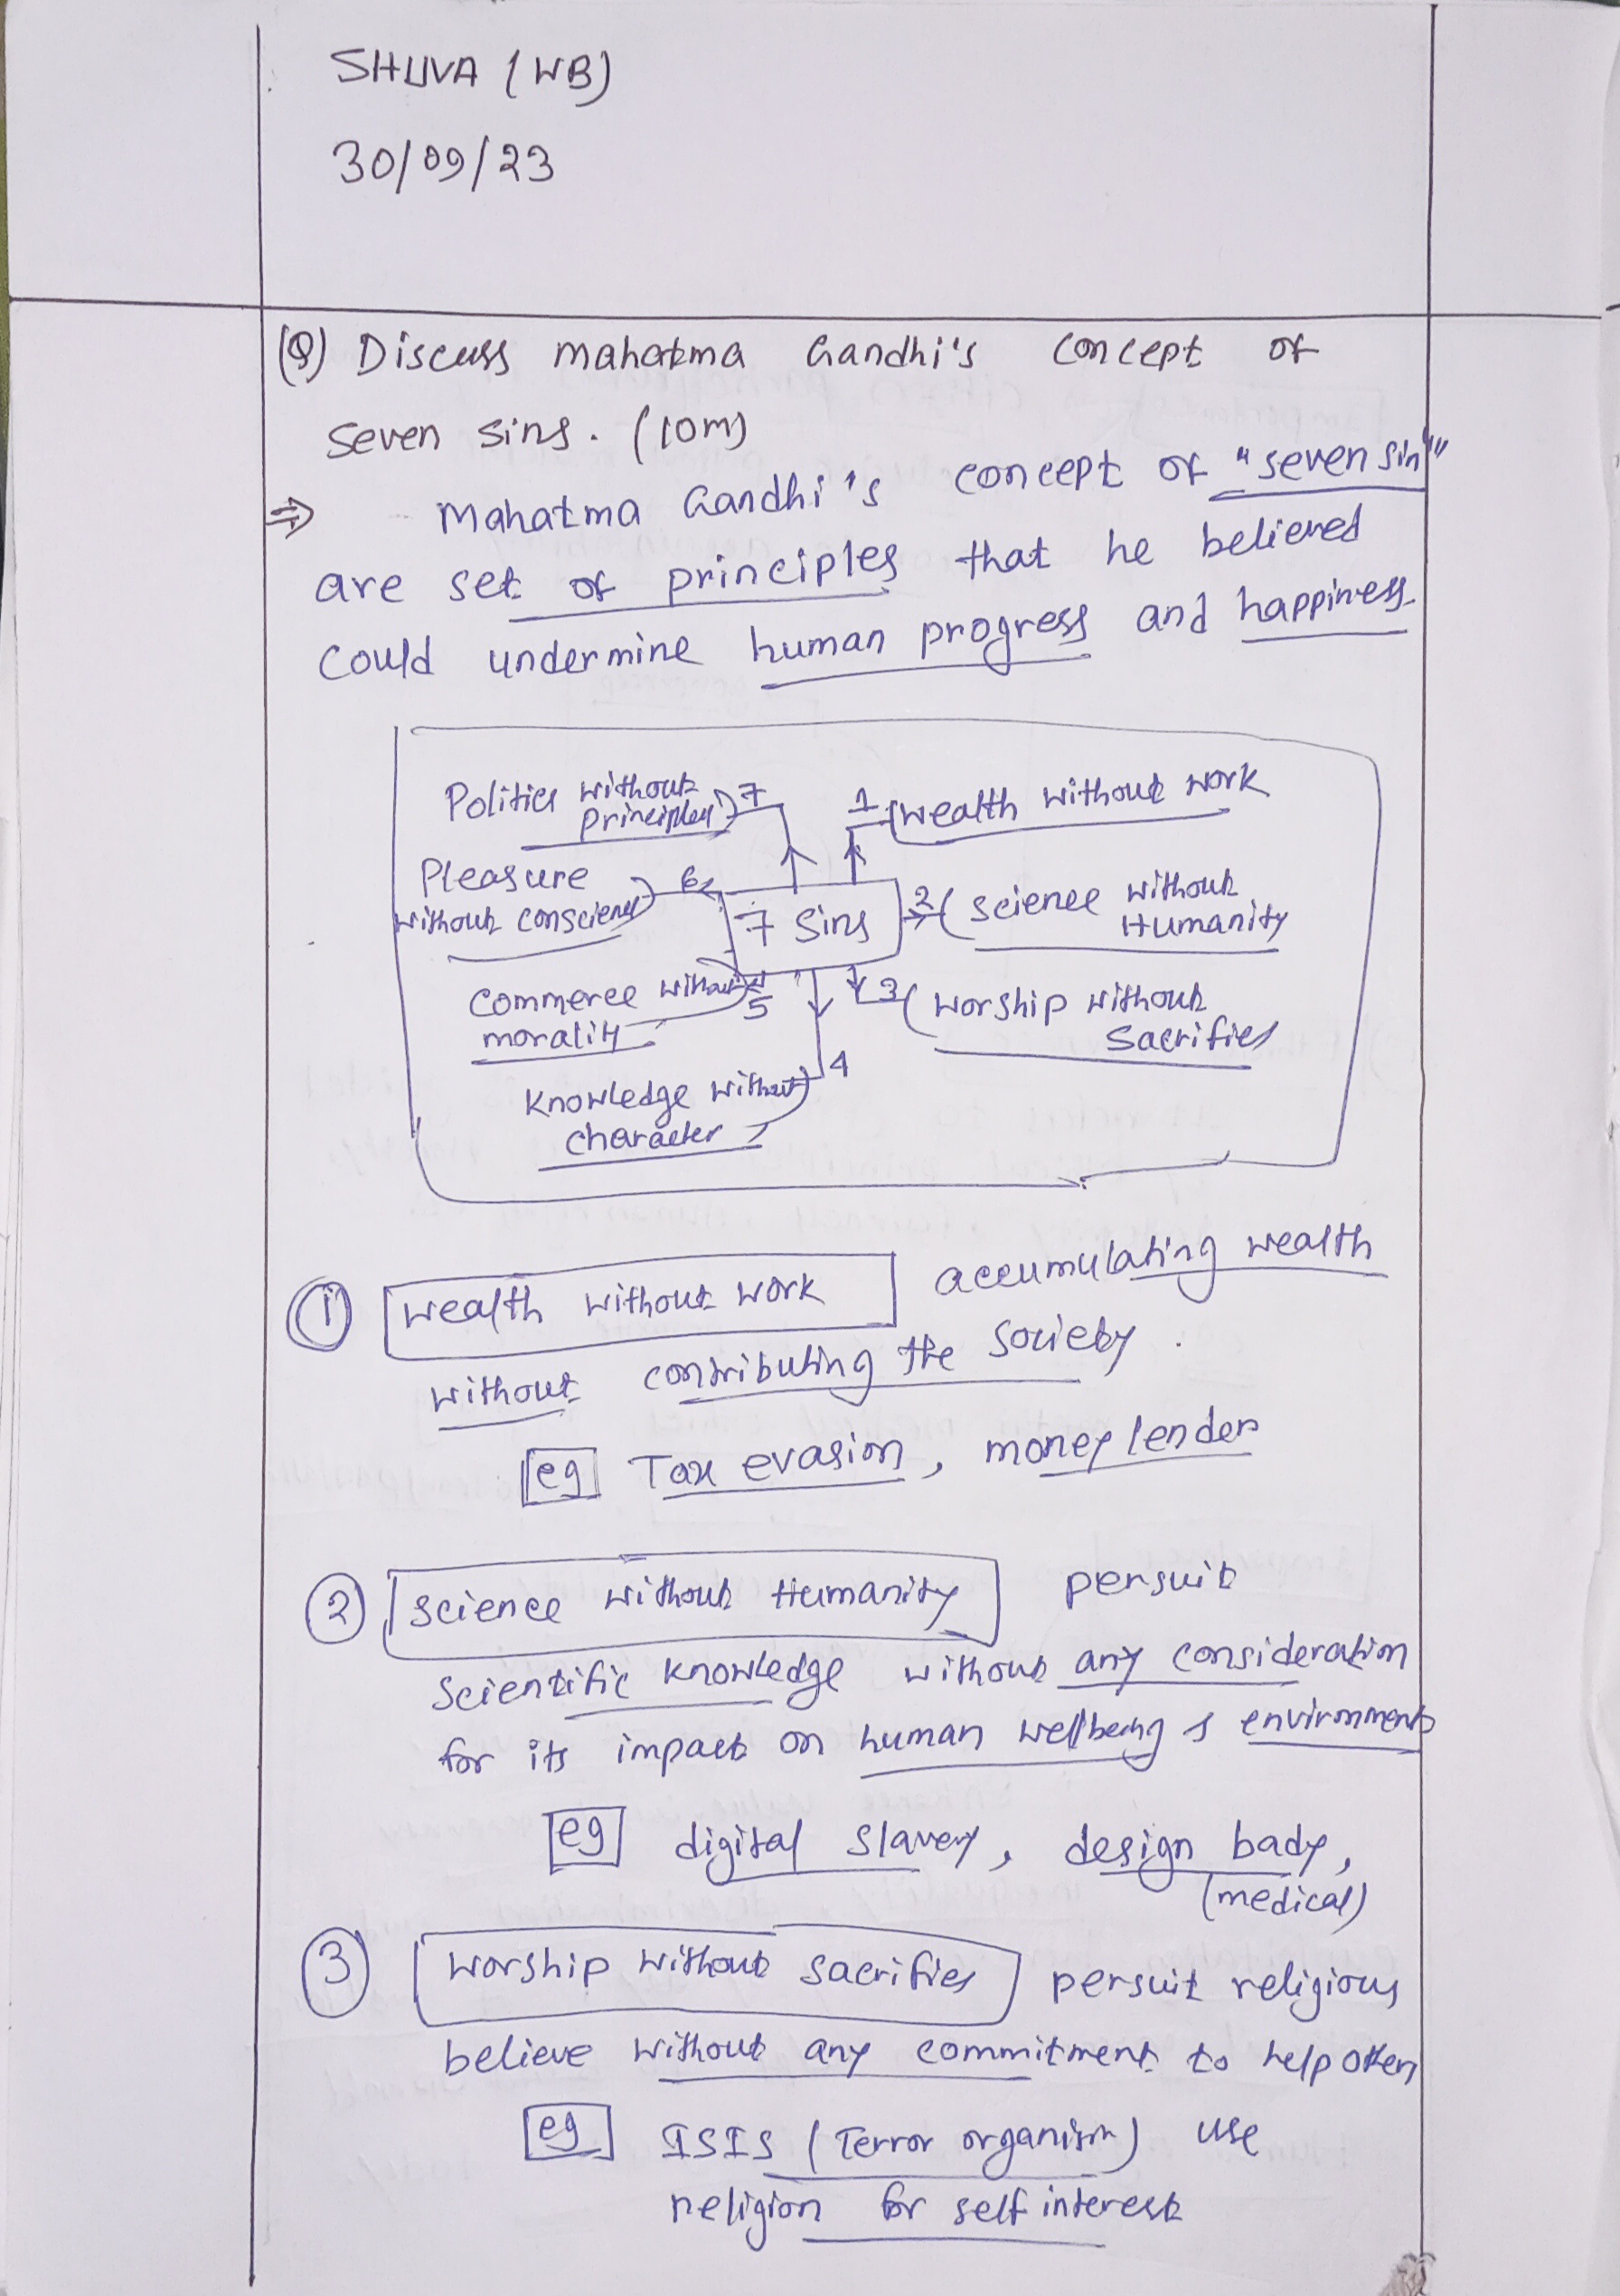 SHUVA (WB)
30/09/23
(Q) Discuss mahatma Gandhi's concept of
seven sins. (10m)
⇒ Mahatma Gandhi's concept of "seven sin"
are set of principles that he believed
could undermine human progress and happiness.
Politics without
principles
7
1
wealth without work
Pleasure
without conscience
6
7 Sins
2
science without
Humanity
commerce without
morality
5
3
worship without
Sacrifies
4
Knowledge without
character
① wealth without work accumulating wealth
without contributing the society.
eg Tax evasion, money lender
② science without Humanity persuit
scientific knowledge without any consideration
for its impact on human wellbeing & environment
eg digital slavery, design bady,
(medical)
③ worship without sacrifies persuit religious
believe without any commitment to help others
eg ISIS (Terror organism) use
religion for self interest